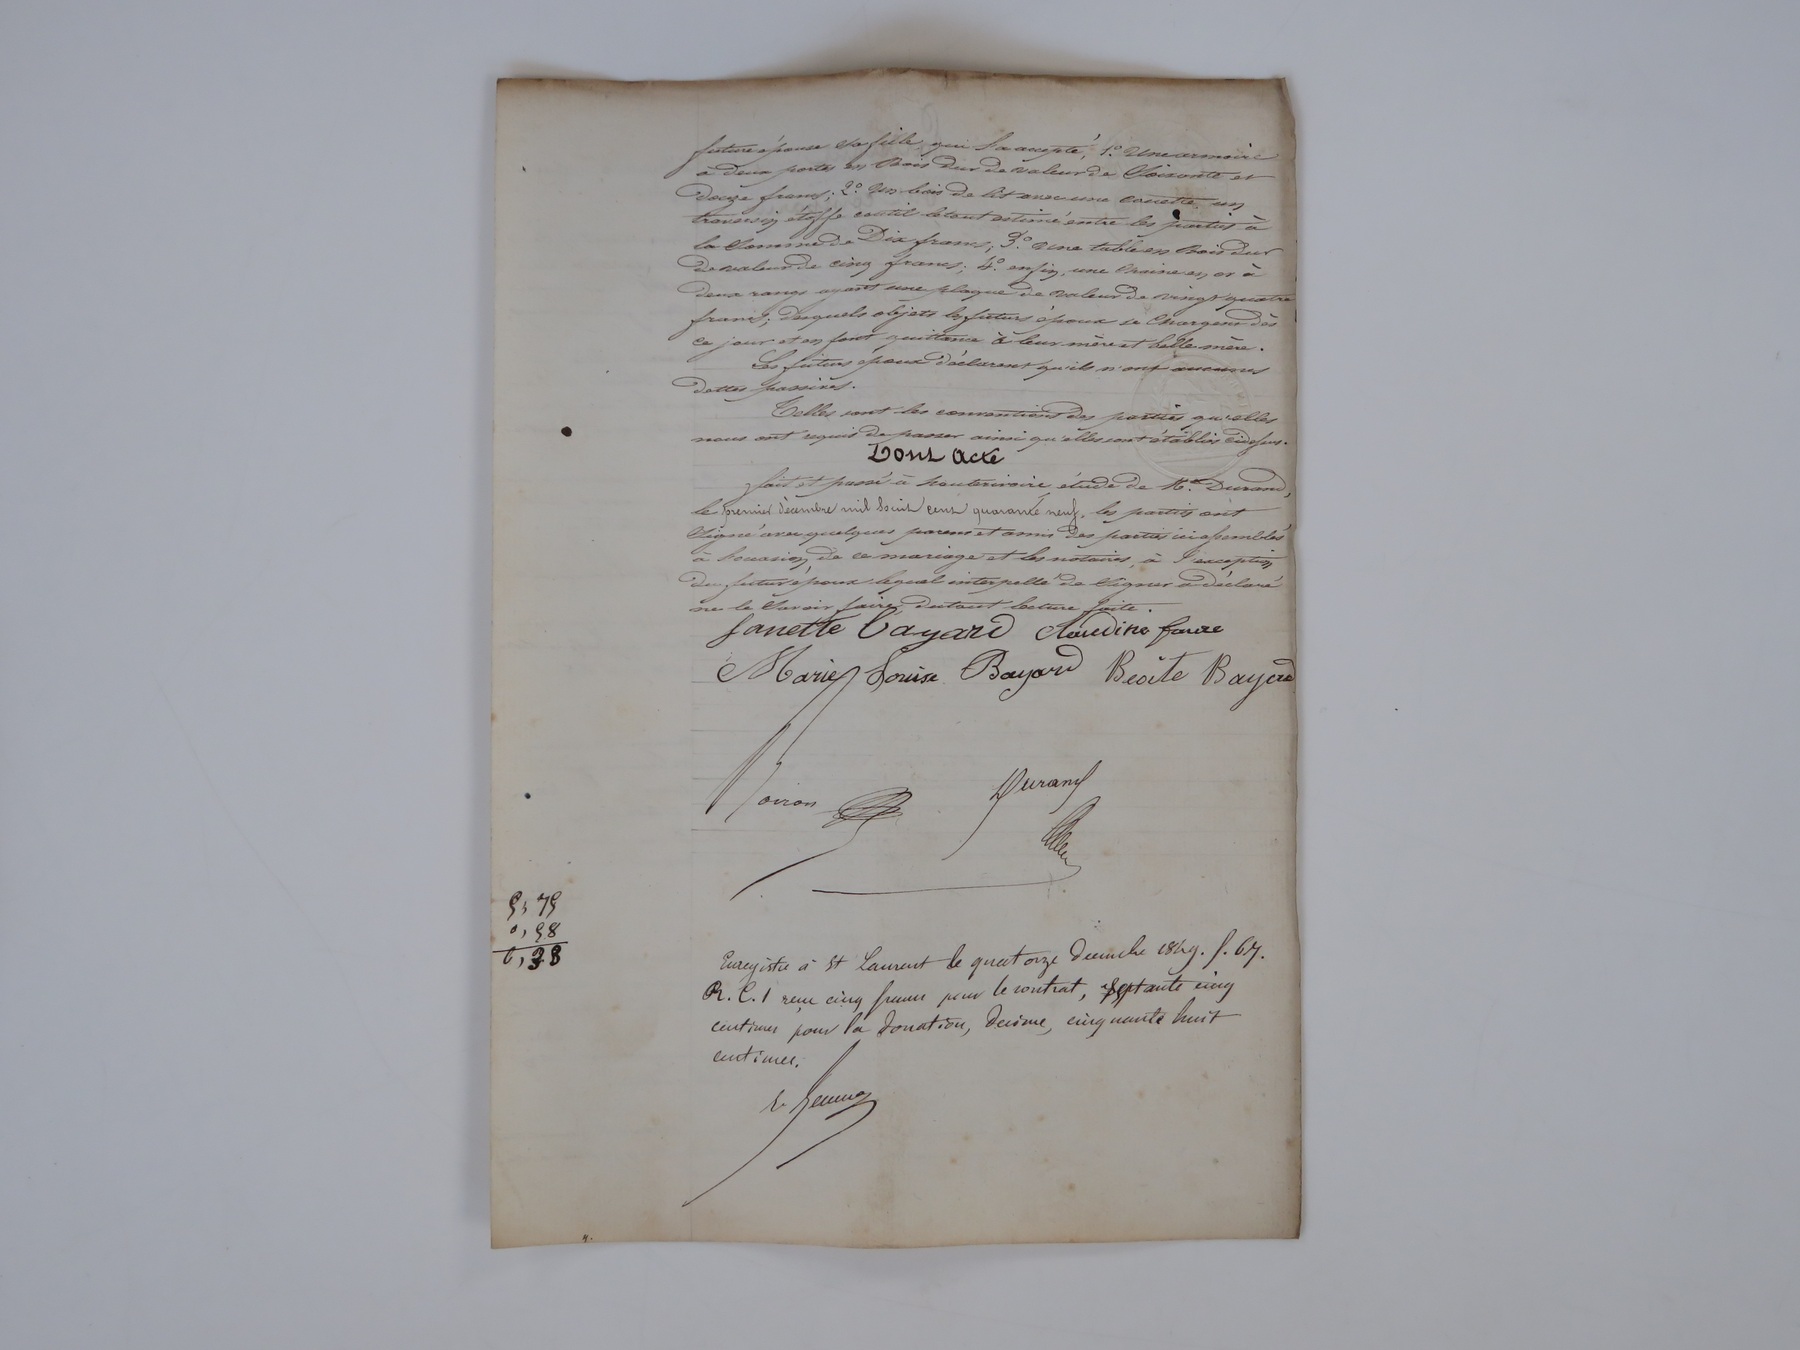 future épouse sa fille qui l'a accepté, 1.° Une armoire
à deux portes en Bois dur de valeur de Soixante et
douze francs; 2.° Un bois de lit avec une couette un
traversin étoffe coutil le tout estimé entre les parties à
la Somme de Dix francs; 3.° Une table en Bois dur
de valeur de cinq francs; 4.° enfin, une chaine en or à
deux rangs ayant une plaque de valeur de vingt quatre
francs; desquels objets les futurs époux se chargent dès
ce jour et en font quittance à leur mère et belle mère.
Les futurs époux déclarent qu'ils n'ont aucunes
dettes passives.
Telles sont les conventions des parties qu'elles
nous ont requis de passer ainsi qu'elles sont établies cidessus.
Dont Acte
fait et passé à hauterivoire étude de Me. Durand,
le premier décembre mil huit cent quarante neuf, les parties ont
Signé avec quelques parens et amis des parties ici assemblés
à l'occasion de ce mariage et les notaires, à l'exception
du futur époux lequel interpellé de Signer a déclaré
ne le Savoir faire, du tout lecture faite.
Janette Bayard Claudine faure
Marie Louise Bayard Beoite Bayard
Noiron Durand
5,75
0,58
6,33
Enregistré à St Laurent le quatorze Decembre 1849. f. 67.
R. C. 1 reçu cinq francs pour le contrat, septante cinq
centimes pour la Donation, Decime, cinquante huit
centimes.